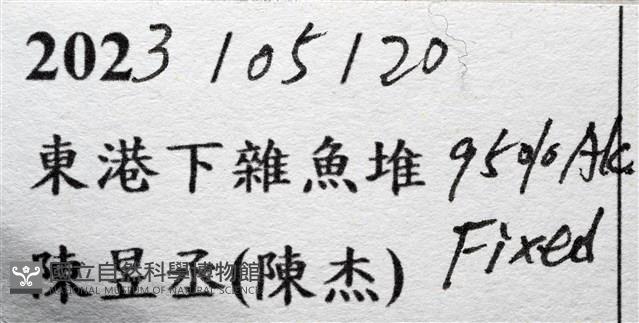 2023/05/20
東港下雜魚堆 95% Alc.
陳昱丞(陳杰) Fixed
國立自然科學博物館
NATIONAL MUSEUM OF NATURAL SCIENCE